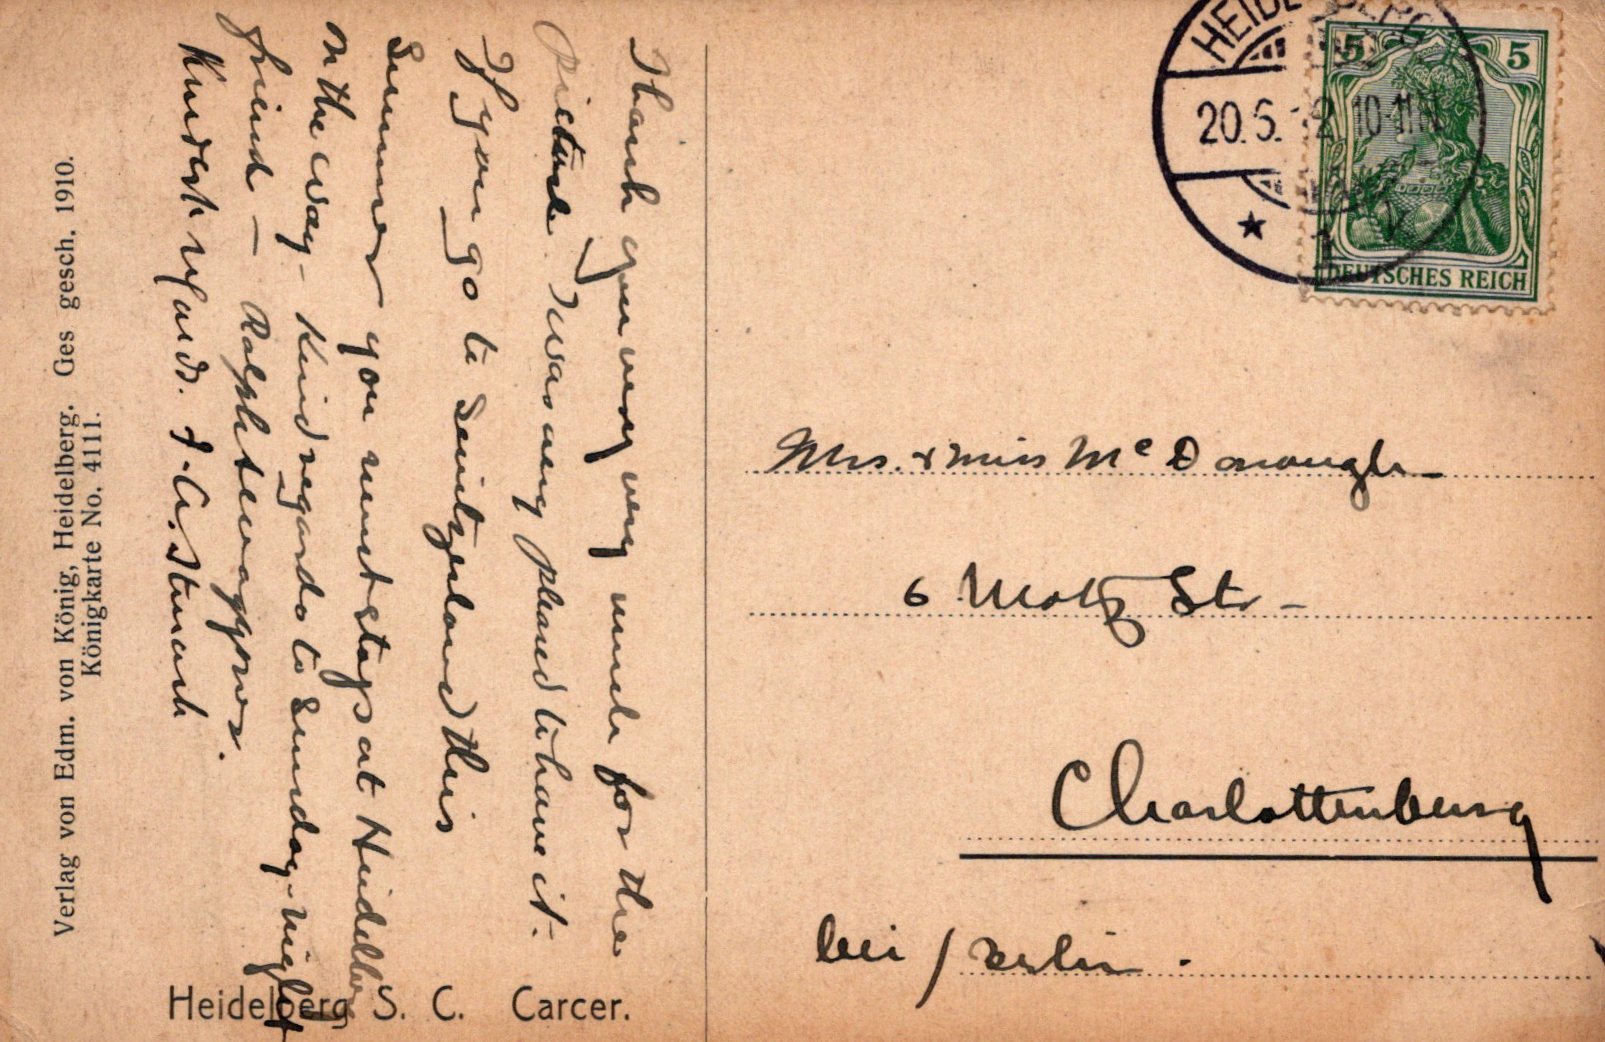 Thank you very very much for the
picture. I was very pleased to have it.
If you go to Switzerland this
Summer you must stop at Heidelberg
on the way - Kind regards to Sunday-night
friend -
Kindest rgards.
HEIDELBERG
20.5.12 10-11
5 5
DEUTSCHES REICH
Mrs. & Miss McDonough
6 Motz Str -
Charlottenburg
bei / Berlin .
Verlag von Edm. von König, Heidelberg. Ges gesch. 1910.
Königkarte No. 4111.
Heidelberg S. C. Carcer.